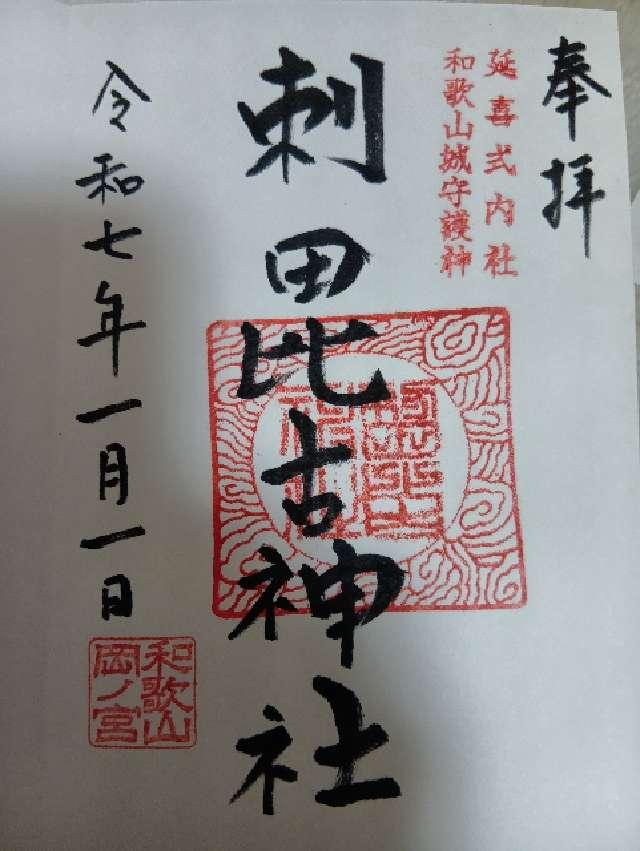 奉拝
延喜式内社
和歌山城守護神
刺田比古神社
令和七年一月一日
和歌山
岡ノ宮